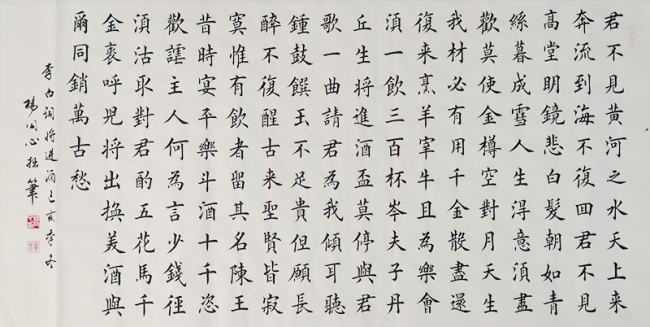 君不見黃河之水天上来
奔流到海不復回君不見
高堂明鏡悲白髮朝如青
絲暮成雪人生得意須盡
歡莫使金樽空對月天生
我材必有用千金散盡還
復来烹羊宰牛且為樂會
須一飲三百杯岑夫子丹
丘生將進酒盃莫停與君
歌一曲請君為我傾耳聽
鍾鼓饌玉不足貴但願長
醉不復醒古来聖賢皆寂
寞惟有飲者留其名陳王
昔時宴平樂斗酒十千恣
歡謔主人何為言少錢徑
須沽取對君酌五花馬千
金裘呼兒將出換美酒與
爾同銷萬古愁
李白詞將進酒己亥季冬
楊心拙筆